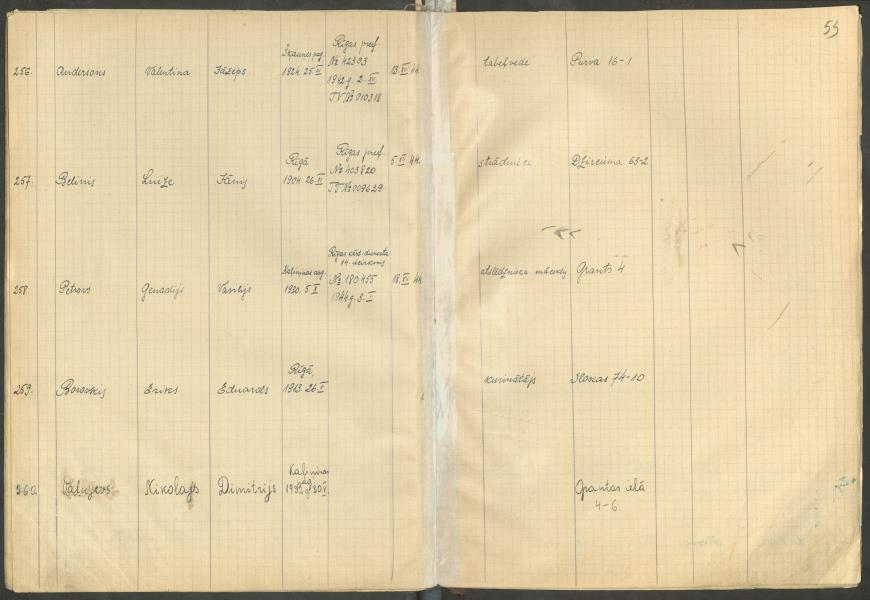 55
256. Andersons Valentina Jāzeps Škaunes pag. 1924. 25 II
Rīgas pref.
№ 42303
1942 g. 2. XI
TV № 010318
13. VI 44. tabelvede Purva 16-1
257. Betinis Luize Jānis Rīgā 1904. 26. II
Rīgas pref.
№ 403820
TT № 009629
5. VI 44. strādniece Dzirciema 63-2
258. Petrovs Genadijs Vasilijs Kaļiņinas apg. 1930. 5. I
14. iecirknis
№ 180455
1944 g. 3. I
18. VI 44. atslēdznieka māceklis Grants 4
259. Borovskij Eriks Eduards Rīgā 1913. 26 I
kurinātājs Slokas 74-10
260. Nikolajs Dimitrijs 30 V.
Grantas ielā
4-6.